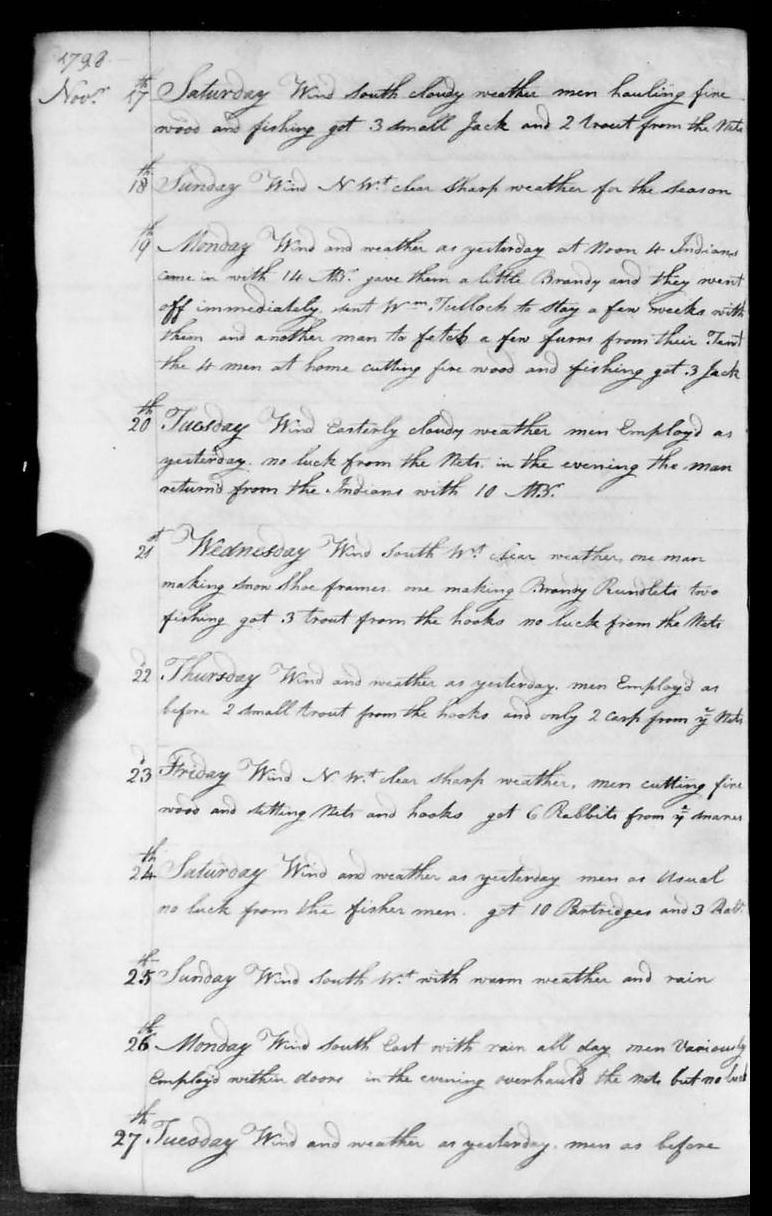 1798
Novr. 17th Saturday Wind South cloudy weather men hauling fire
wood and fishing got 3 small Jack and 2 trout from the Nets
18th Sunday Wind N Wt. clear sharp weather for the season
19th Monday Wind and weather as yesterday at Noon 4 Indians
came in with 14 MBr. gave them a little Brandy and they went
off immediately, sent Wm. Tulloch to stay a few weeks with
them and another man to fetch a few furrs from their Tent
the 4 men at home cutting fire wood and fishing got 3 Jack
20th Tuesday Wind Easterly cloudy weather men Employd as
yesterday. no luck from the Nets. in the evening the man
returnd from the Indians with 10 MBr.
21st Wednesday Wind South Wt. clear weather, one man
making snow shoe frames. one making Brandy Rundlets two
fishing got 3 trout from the hooks no luck from the Nets
22d Thursday Wind and weather as yesterday. men Employd as
before 2 small trout from the hooks and only 2 carp from ye Nets
23d Friday Wind N Wt. clear sharp weather, men cutting fire
wood and setting Nets and hooks got 6 Rabbits from ye snares
24th Saturday Wind and weather as yesterday men as Usual
no luck from the fisher men. got 10 Partridges and 3 Rabt.
25th Sunday Wind South Wt. with warm weather and rain
26th Monday Wind South East with rain all day men Variously
Employd within doors in the evening overhauld the nets but no luck
27th Tuesday Wind and weather as yesterday. men as before